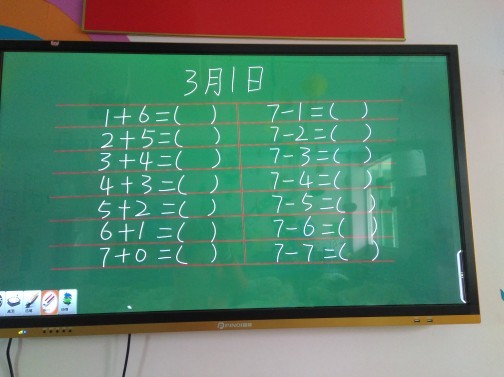 3月1日
1+6=( ) 7-1=( )
2+5=( ) 7-2=( )
3+4=( ) 7-3=( )
4+3=( ) 7-4=( )
5+2=( ) 7-5=( )
6+1=( ) 7-6=( )
7+0=( ) 7-7=( )